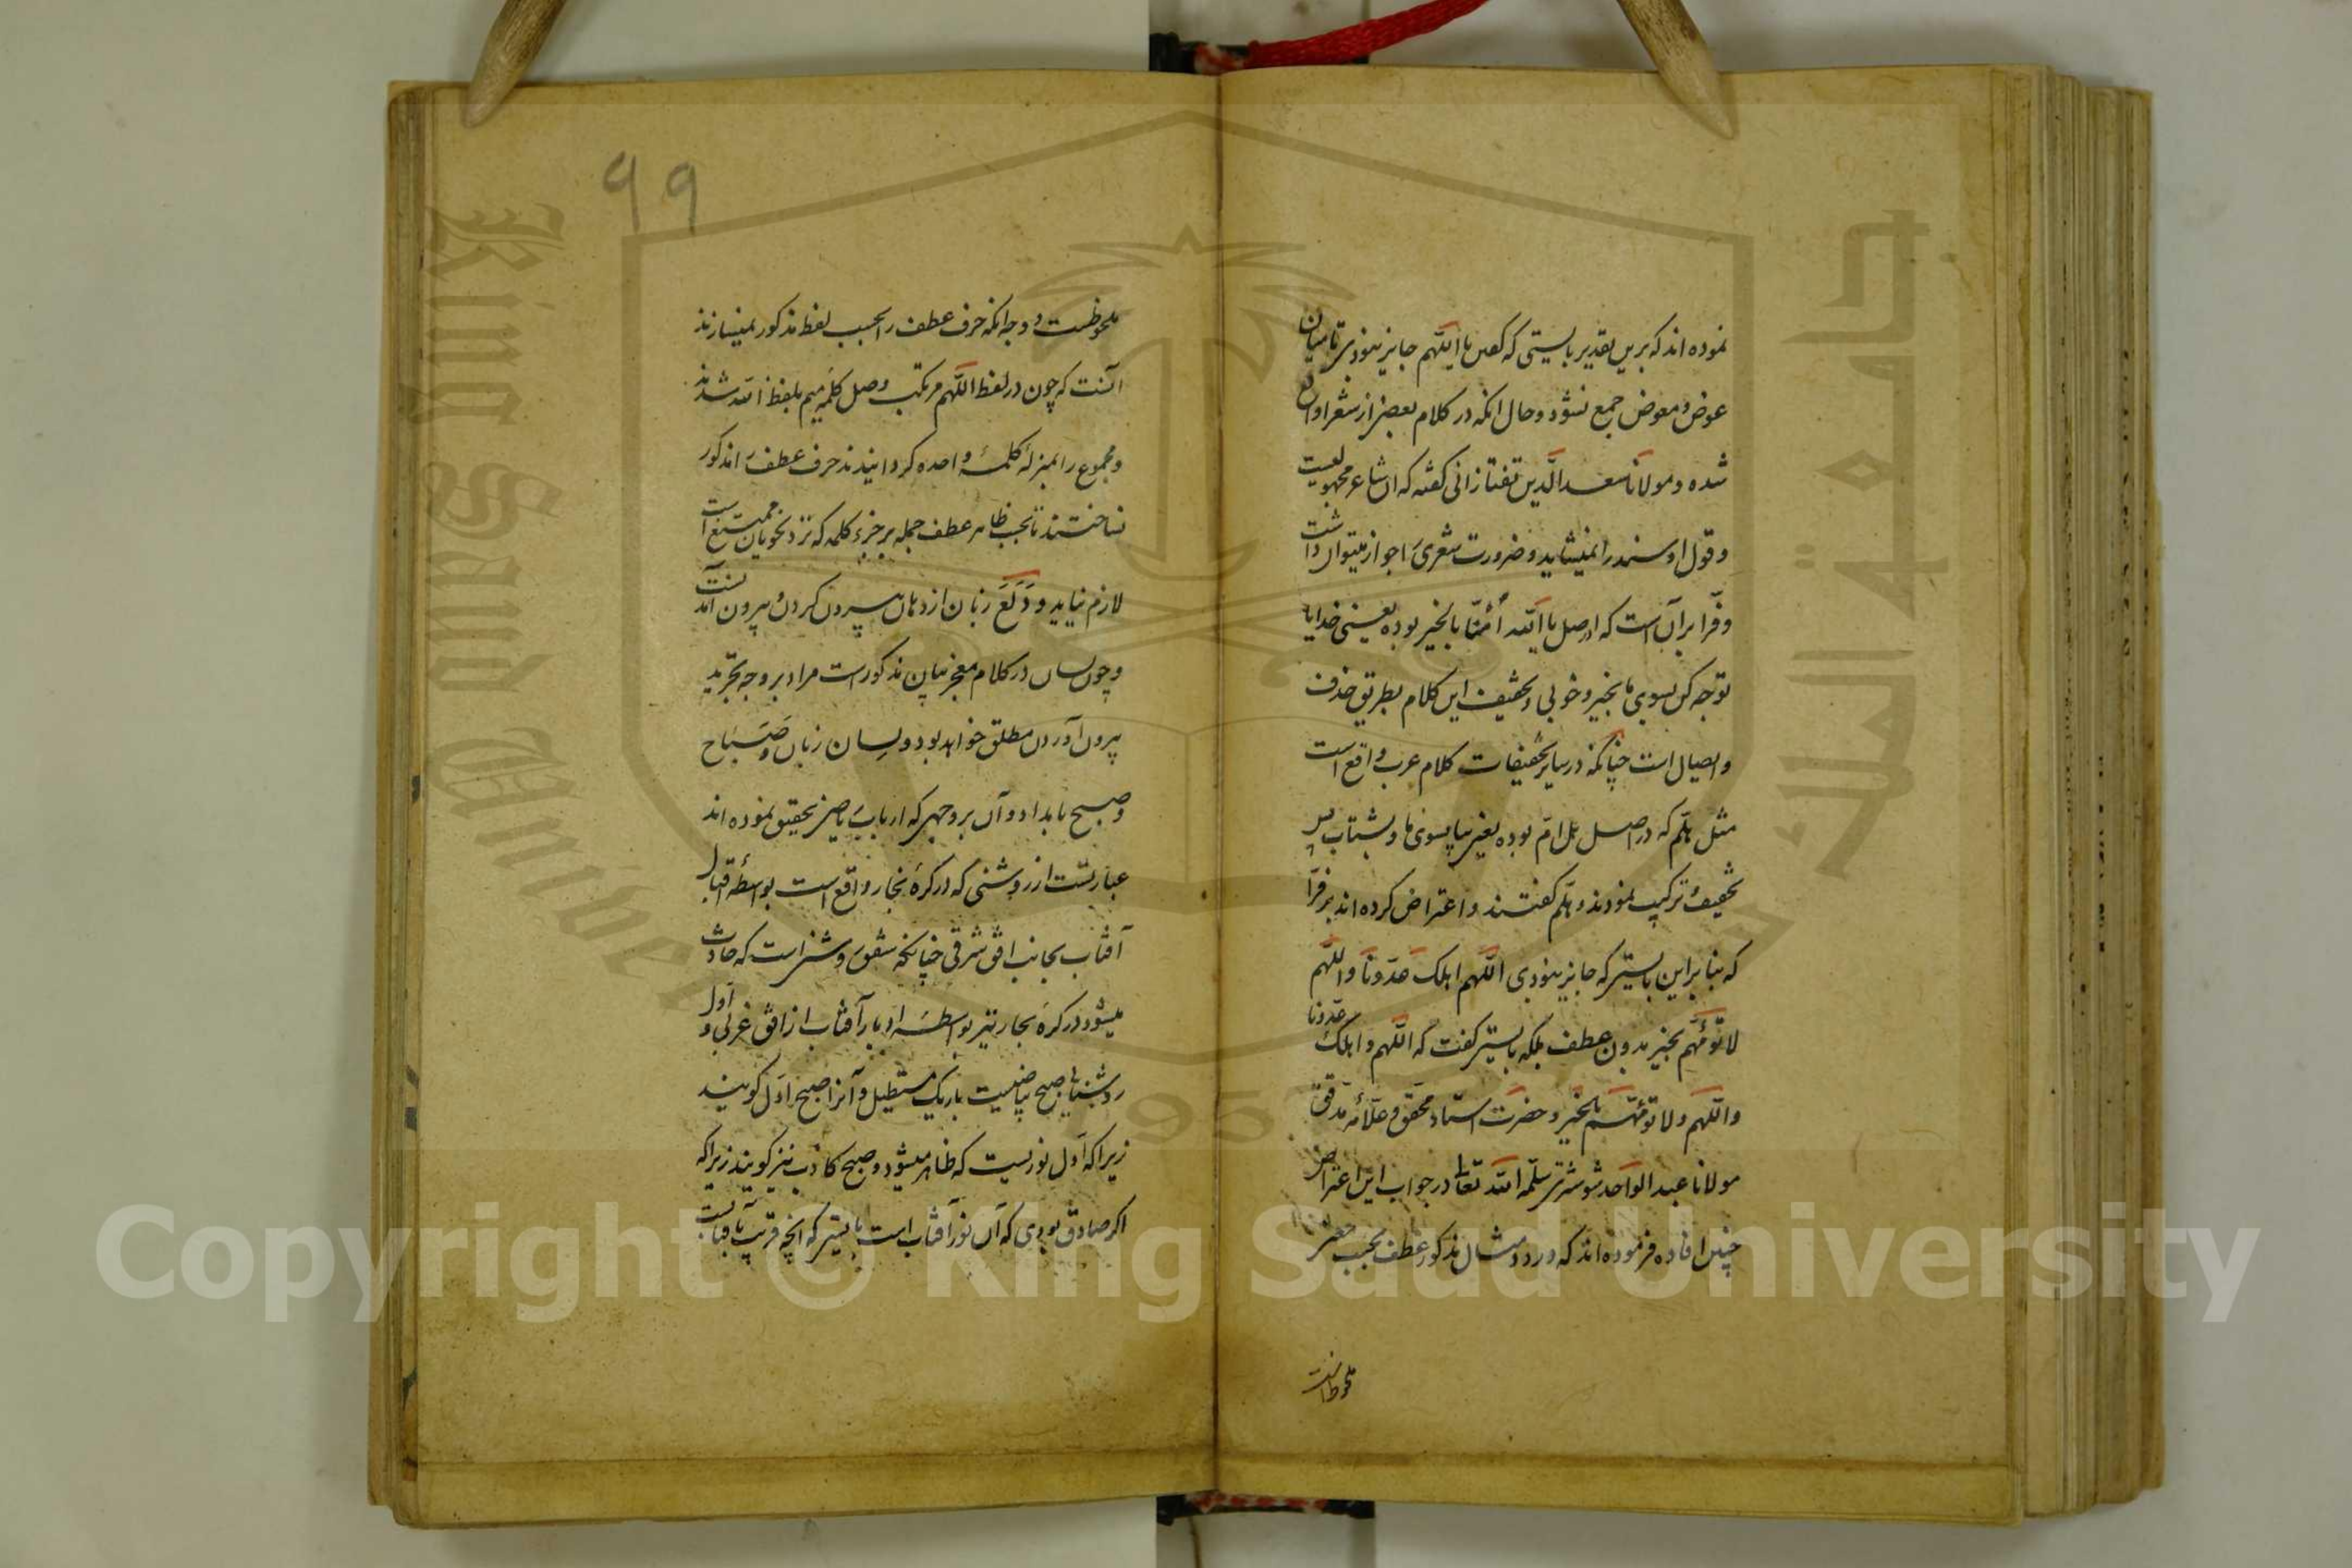 نموده اند که برین تقدیر بایستی که گفتن یا اللّهم جایز نبودی تا میان
عوض و معوض جمع نشود و حال انکه در کلام بعضی از شعرا واقع
شده و مولانا سعد الدّین تفتازانی گفته که ان شاعر مجهولیست
و قول او سند را نمیشاید و ضرورت شعری را جواز میتوان داشت
و فرّا بر آن است که در اصل یا الله اُمّنا بالخیر بوده یعنی خدایا
توجه کن بسوی ما بخیر و خوبی و تخفیف این کلام بطریق حذف
و ایصال است چنانکه در سایر تخفیفات کلام عرب واقع است
مثل هلّم که در اصل هل امّ بوده یعنی بیا بسوی ما و بشتاب پس
تخفیف ترکیب نمودند و هلّم گفتند و اعتراض کرده اند بر فرّا
که بنا بر این بایستی که جایز نبودی اللّهم اهلک عدّونا و اللّهم
لا تؤمّهم بخیر بدون عطف بلکه بایستی گفت که اللّهم و اهلک عدّونا
و اللّهم و لا تؤمّهم بالخیر و حضرت استاد محقّق و علّامه مدقّق
مولانا عبد الواحد شوشتری سلّمه الله تعالی در جواب این اعتراض
چنین افاده فرموده اند که در دو مثال مذکور عطف بحسب معنی
ملحوظست
99
ملحوظست و وجه انکه حرف عطف را بحسب لفظ مذکور نمیسازند
آنست که چون در لفظ اللّهم مرتکب وصل کلمه میم بلفظ الله شدند
و مجموع را بمنزلهٔ کلمهٔ واحده گردانیدند حرف عطف را مذکور
نساختند تا بحسب ظاهر عطف جمله بر جزء کلمه که نزد نحویان ممتنع است
لازم نیاید و دَلَعَ زبان از دهان بیرون کردن و بیرون آمدنست
و چون لسان در کلام معجز بیان مذکور است مراد بر وجه تجرید
بیرون آوردن مطلق خواهد بود و لِسان زبان و صَبَاح
و صبح بامداد و آن بر وجهی که ارباب ریاضی تحقیق نموده اند
عبارتست از روشنی که در کرهٔ بخار واقع است بواسطهٔ اقبال
آفتاب بجانب افق شرقی چنانکه شفق روشنی است که حادث
میشود در کره بخار نیز بواسطهٔ ادبار آفتاب از افق غربی و اوّل
روشنیهای صبح بیاضیست باریک مستطیل و آنرا صبح اوّل گویند
زیرا که اوّل نوریست که ظاهر میشود و صبح کاذب نیز گویند زیرا که
اگر صادق بودی که آن نور آفتاب است بایستی که انچه قریب بآفتابست
Copyright © King Saud University
King Saud University
جامعة الملك سعود